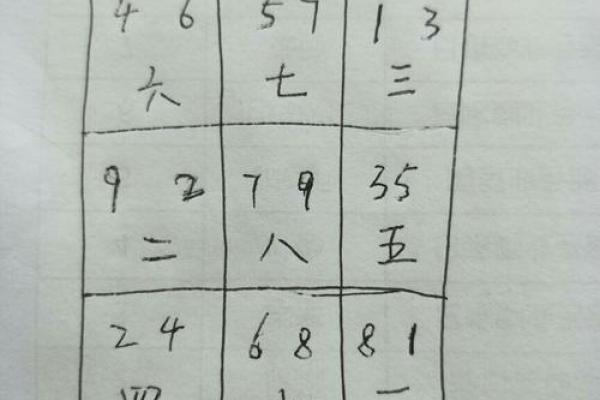 4 6 5 7 1 3
六 七 三
9 2 7 9 3 5
二 八 五
2 4 6 8 8 1
四 一